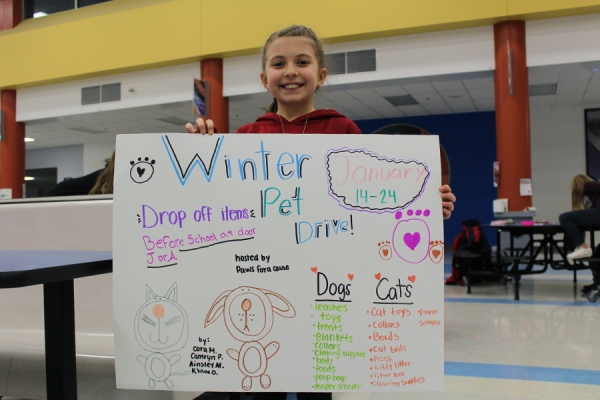 Winter
Pet
Drive!
January
14-24
Drop off items
Before School at door
J or A
hosted by
Paws for a cause
Dogs
• leashes
• toys
• treats
• Blankets
• collars
• cleaning supplies
• beds
• foods
• poop bags
• Pooper scooper
Cats
• Cat toys
• Collars
• Bowls
• Cat beds
• Food
• Kitty litter
• litter box
• Cleaning supplies
• Pooper
scooper
by:
Cora M.
Camryn P.
Ainsley M.